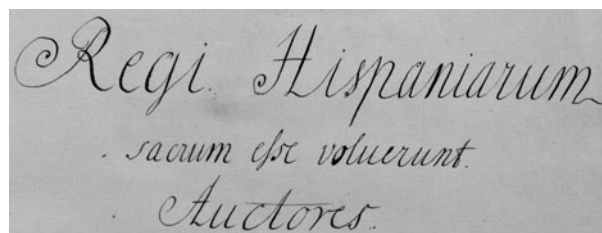 Regi Hispaniarum
sacrum esse voluerunt.
Auctores.